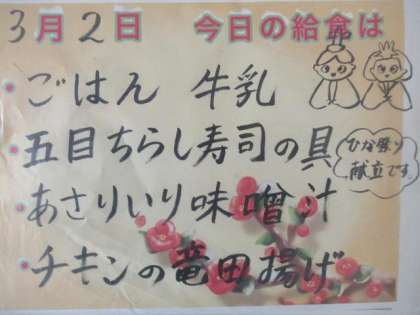 3月2日 今日の給食は
・ごはん 牛乳
・五目ちらし寿司の具
ひな祭り
献立です
・あさりいり味噌汁
・チキンの竜田揚げ